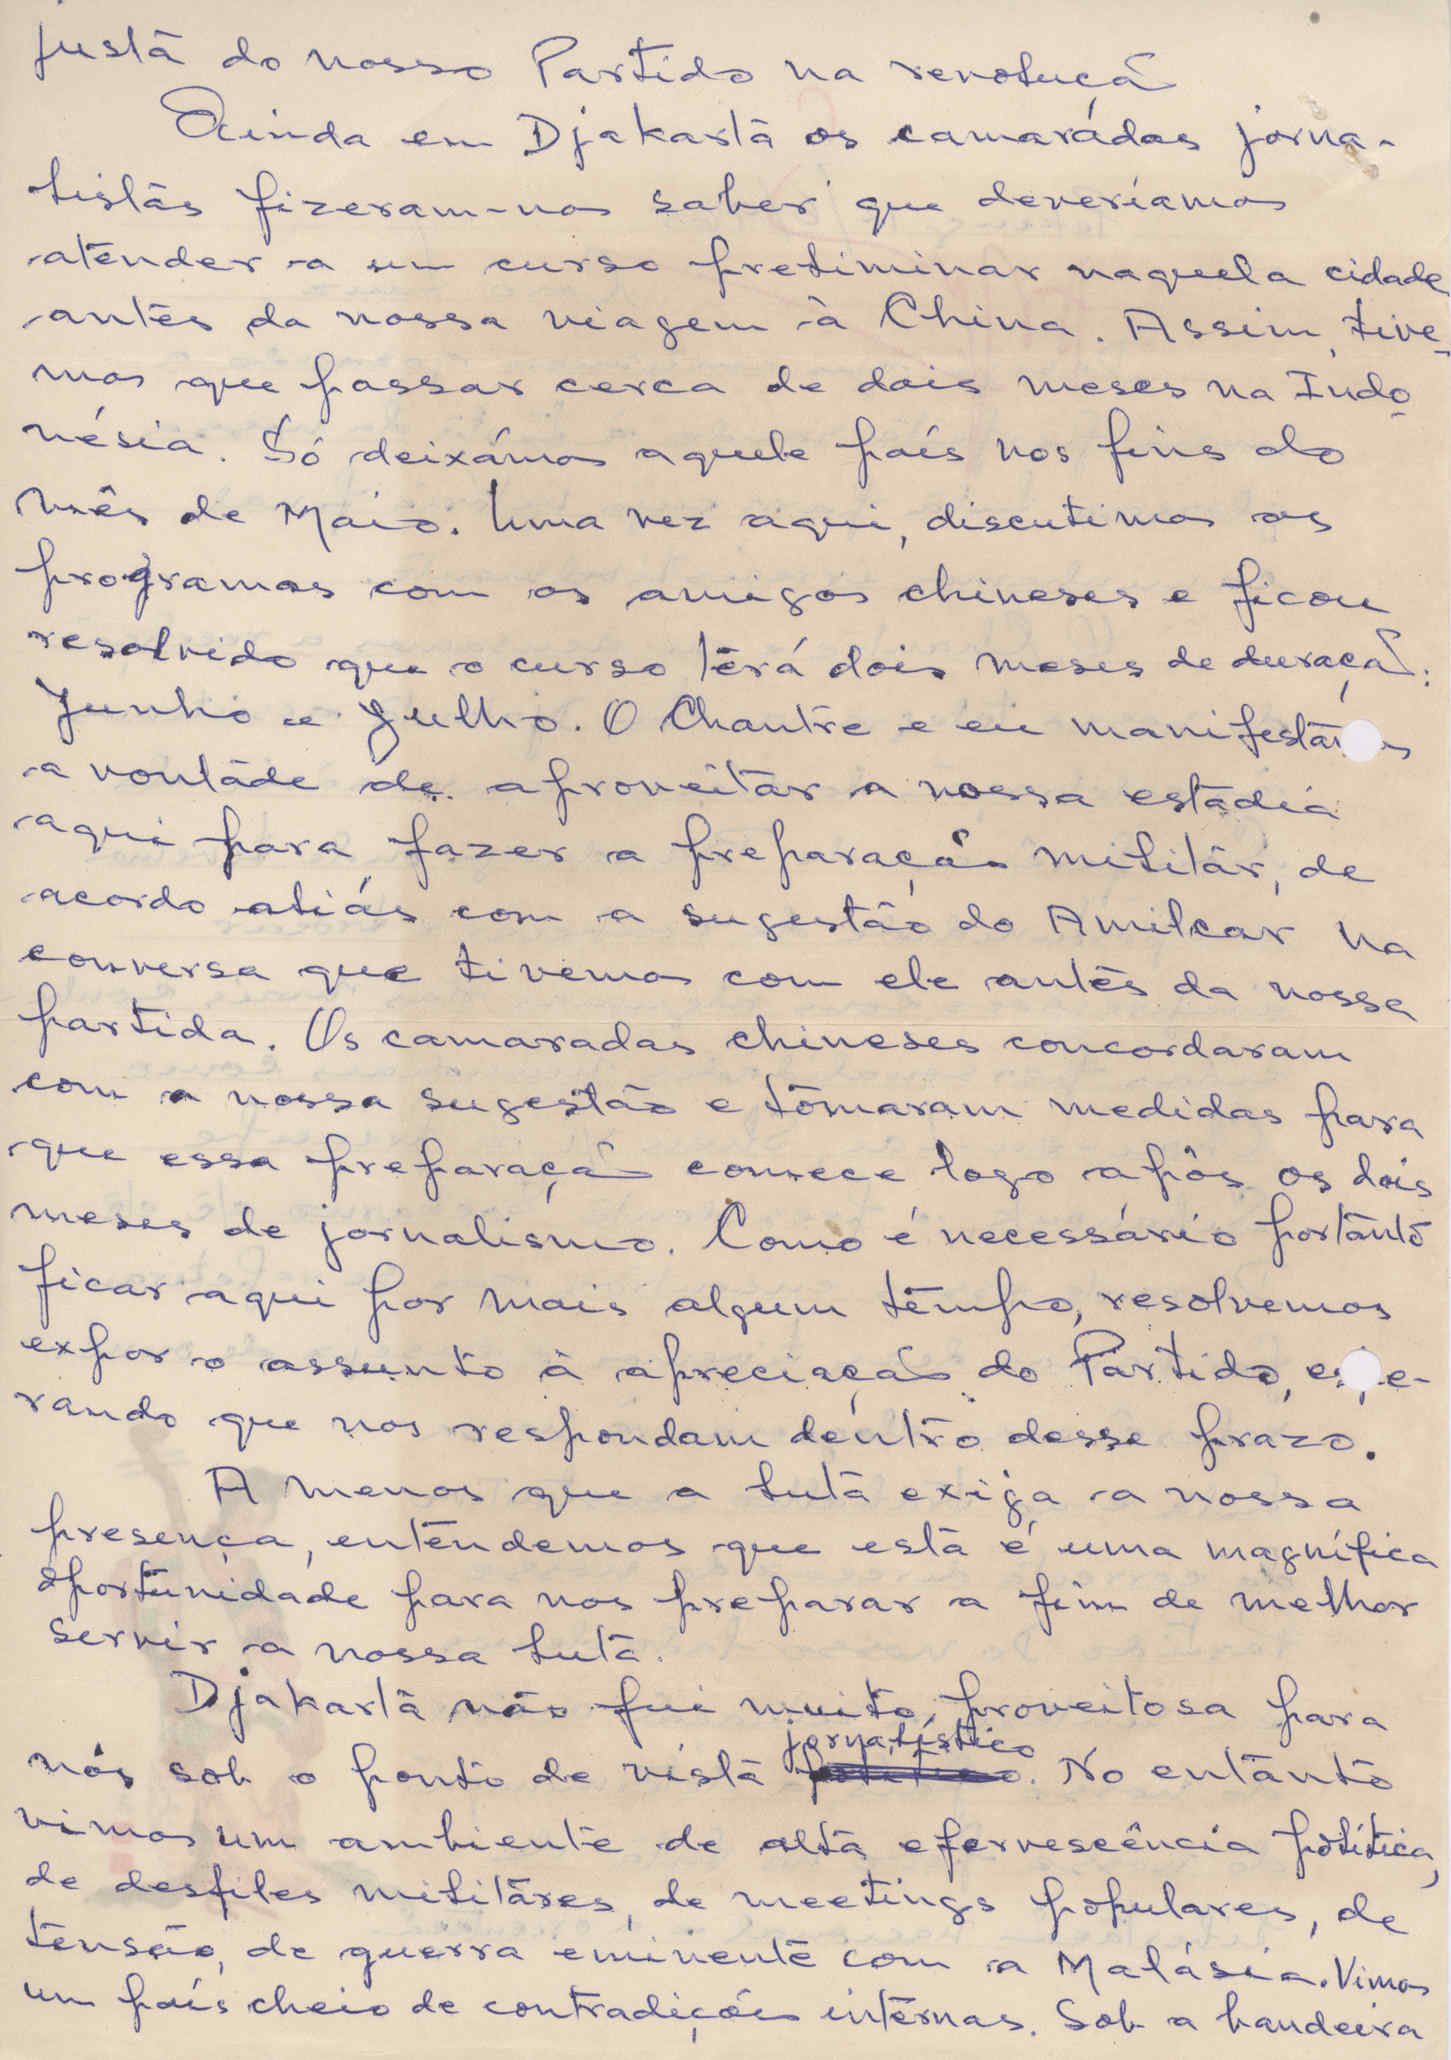 justa do nosso Partido na revolução
Ainda em Djakarta os camarádas jorna-
listas fizeram-nos saber que deveríamos
atender a um curso preliminar naquela cidade
antes da nossa viagem à China. Assim, tive-
mos que passar cerca de dois meses na Indo
nésia. Só deixámos aquele país nos fins do
mês de Maio. Uma vez aqui, discutimos os
programas com os amigos chineses e ficou
resolvido que o curso terá dois meses de duração:
Junho e Julho. O Chantre e eu manifestámos
a vontade de aproveitar a nossa estadia
aqui para fazer a preparação militar, de
acordo aliás com a sugestão do Amilcar na
conversa que tivemos com ele antes da nossa
partida. Os camaradas chineses concordaram
com a nossa sugestão e tomaram medidas para
que essa preparação comece logo após os dois
meses de jornalismo. Como é necessário portanto
ficar aqui por mais algum tempo, resolvemos
expor o assunto à apreciação do Partido, espe-
rando que nos respondam dentro desse prazo.
A menos que a luta exija a nossa
presença, entendemos que esta é uma magnífica
oportunidade para nos preparar a fim de melhor
servir a nossa luta.
Djakarta não fui muito proveitosa para
nós sob o ponto de vista jornalístico. No entanto
vimos um ambiente de alta efervescência política,
de desfiles militares, de meetings populares, de
tensão, de guerra eminente com a Malásia. Vimos
um país cheio de contradições internas. Sob a bandeira